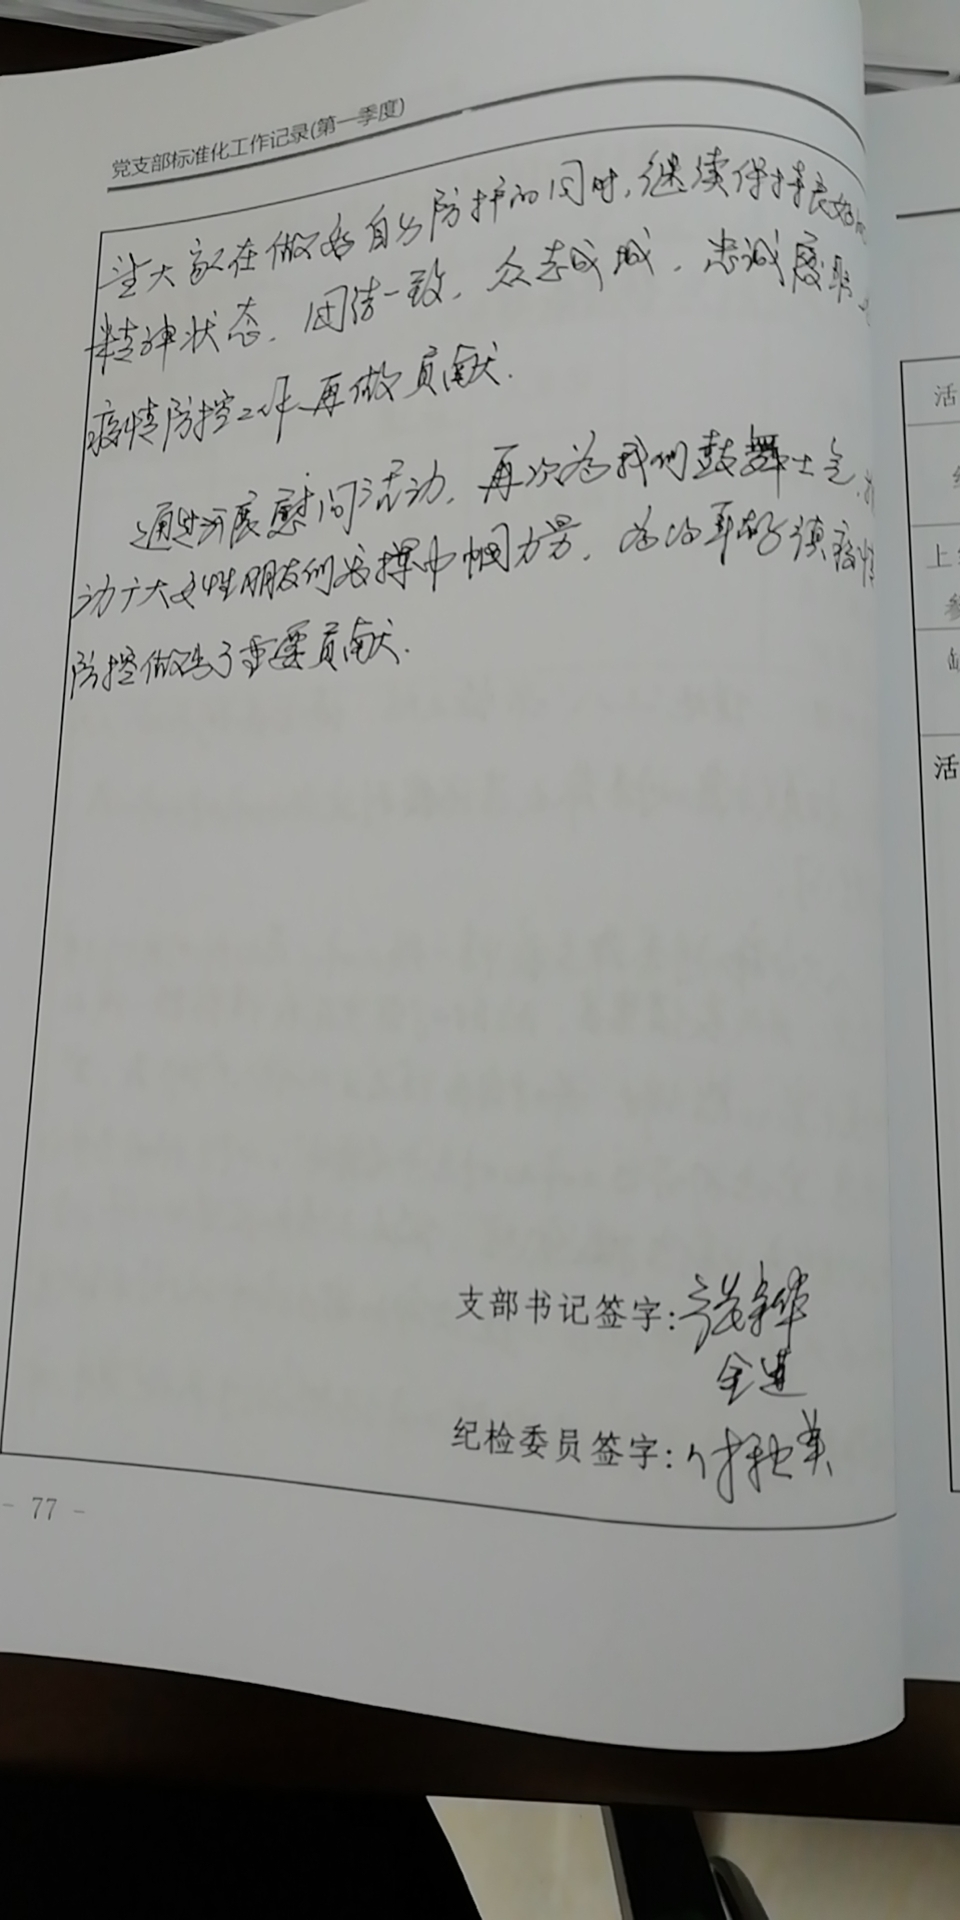 党支部标准化工作记录(第一季度)
望大家在做好自身防护的同时,继续保持良好的
精神状态,团结一致,众志成城,忠诚履职,
疫情防控工作再做贡献.
通过开展慰问活动,再次为我们鼓舞士气,
动广大女性朋友们发挥巾帼力量,为镇疫情
防控做出了重要贡献.
支部书记签字:
纪检委员签字:
- 77 -
活
上
参
活